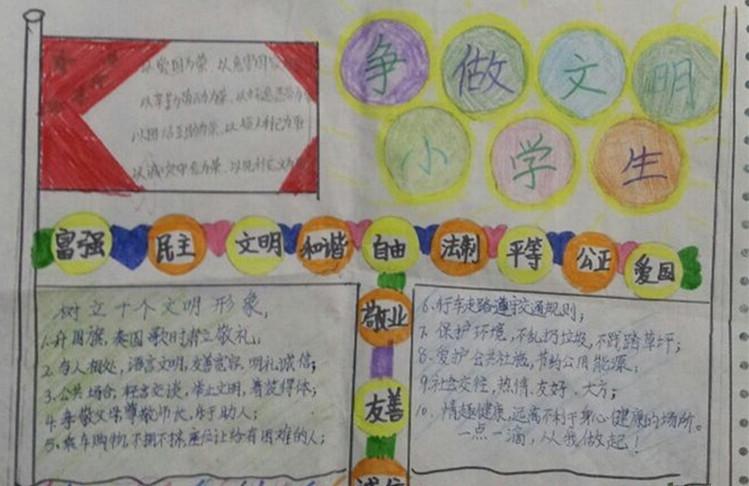 争做文明
小学生
以爱国为荣、以危害
以辛勤劳动为荣、以好逸恶劳为
以团结互助为荣、以损人利己为耻
以诚实守信为荣、以见利忘义为
富强 民主 文明 和谐 自由 法制 平等 公正 爱国
敬业
友善
诚信
树立十个文明形象,
1.升国旗,奏国歌时肃立敬礼;
2.与人相处,语言文明,友善宽容,明礼诚信;
3.公共场合,轻言交谈,举止文明,着装得体;
4.孝敬父母尊敬师长,乐于助人;
5.乘车购物,不拥不挤,座位让给有困难的人;
6.行车走路遵守交通规则;
7.保护环境,不乱扔垃圾,不践踏草坪;
8.爱护公共设施,节约公用能源;
9.社会交往,热情、友好、大方;
10、情趣健康,远离不利于身心健康的场所。
一点一滴,从我做起!